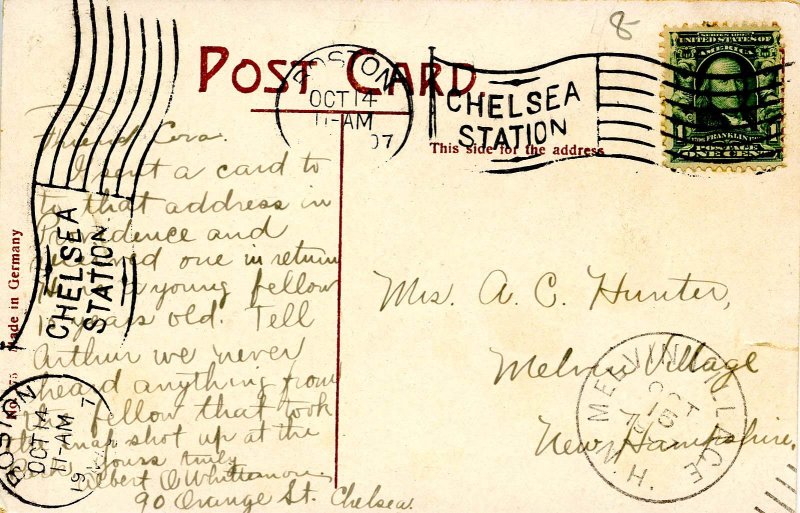 8-
POST CARD.
BOSTON
OCT 14
11-AM
07
CHELSEA
STATION
SERIES 1902
UNITED STATES OF
AMERICA
FRANKLIN
POSTAGE
ONE CENT
This side for the address
Friend Cora.
I sent a card to
to that address in
Providence and
received one in return
from a young fellow
years old. Tell
Arthur we never
heard anything from
the fellow that took
the snap shot up at the
yours truly
Albert O Whittemore
90 Orange St. Chelsea.
Mrs. A. C. Hunter,
Melvin Village
New Hampshire.
MELVIN VILLAGE
OCT
15
N.H.
Made in Germany
CHELSEA
STATION
BOSTON
OCT 14
11-AM
19 7